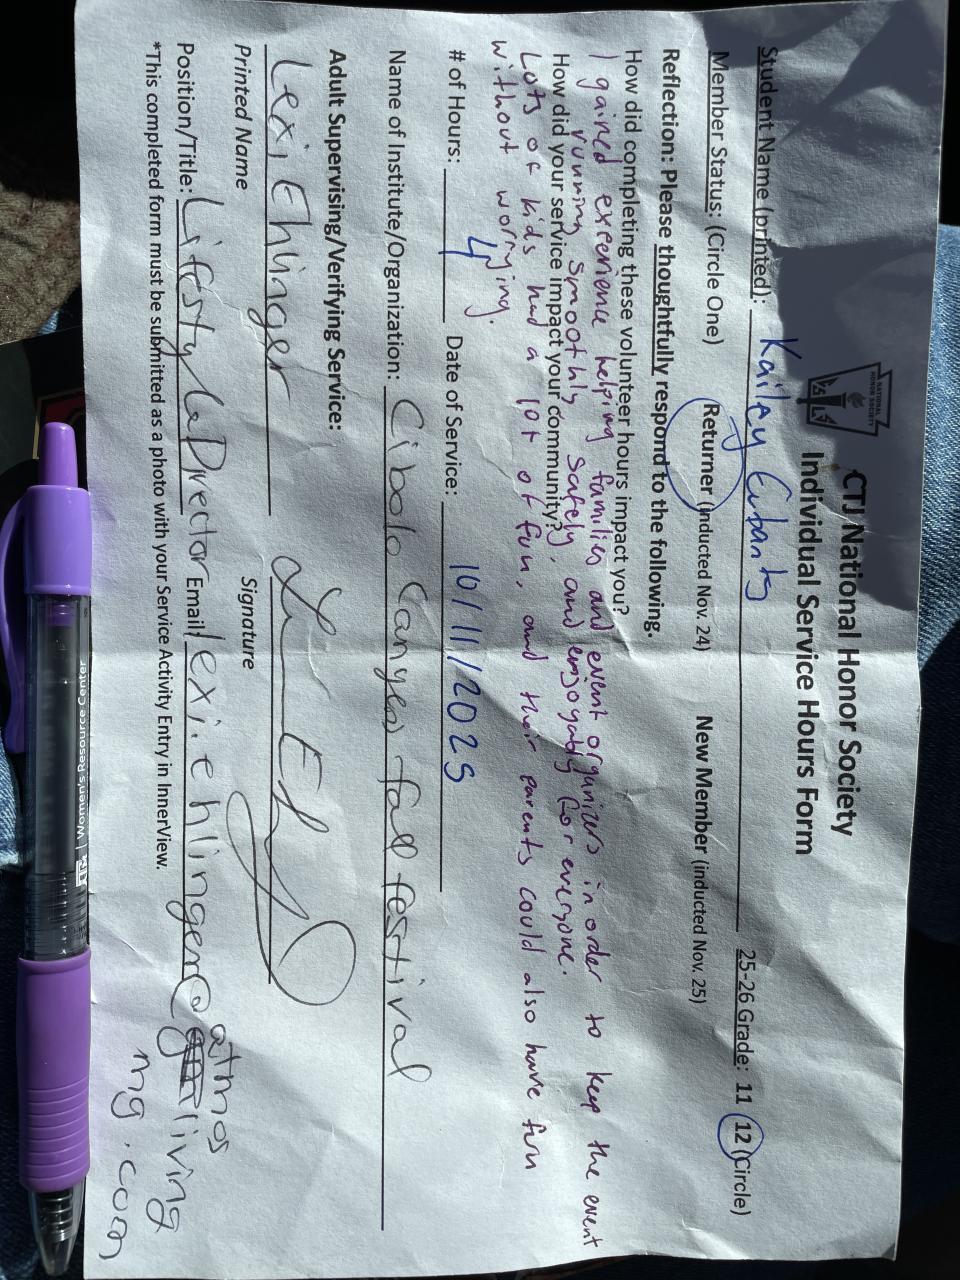 NATIONAL
HONOR SOCIETY
CTJ National Honor Society
Individual Service Hours Form
Student Name (printed): Kailey Eubanks 25-26 Grade: 11 12 (Circle)
Member Status: (Circle One) Returner (Inducted Nov. 24) New Member (inducted Nov. 25)
Reflection: Please thoughtfully respond to the following.
How did completing these volunteer hours impact you?
I gained experience helping families and event organizers in order to keep the event
running smoothly, safely, and enjoyably for everyone.
How did your service impact your community?
Lots of kids had a lot of fun, and their parents could also have fun
without worrying.
# of Hours: 4 Date of Service: 10/11/2025
Name of Institute/Organization: Cibolo Canyons fall festival
Adult Supervising/Verifying Service:
Lexi Ehlinger
Printed Name Signature
Position/Title: Lifestyle Director Email: lexi.ehlinger@atmosliving
mg.com
*This completed form must be submitted as a photo with your Service Activity Entry in InnerView.
Women's Resource Center